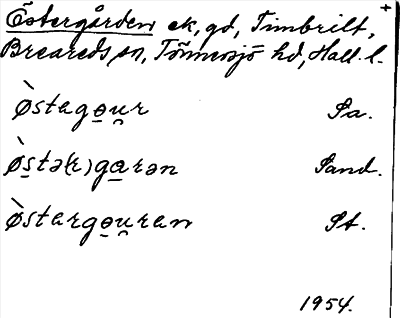 Östergården ek, gd, Timbrilt, +
Breareds sn, Tönnersjö hd, Hall. l.
Østego̲u̯r Sa.
Øs̲tə(r)ga̲rən Sand.
Østergo̲u̯ren St.
1954.